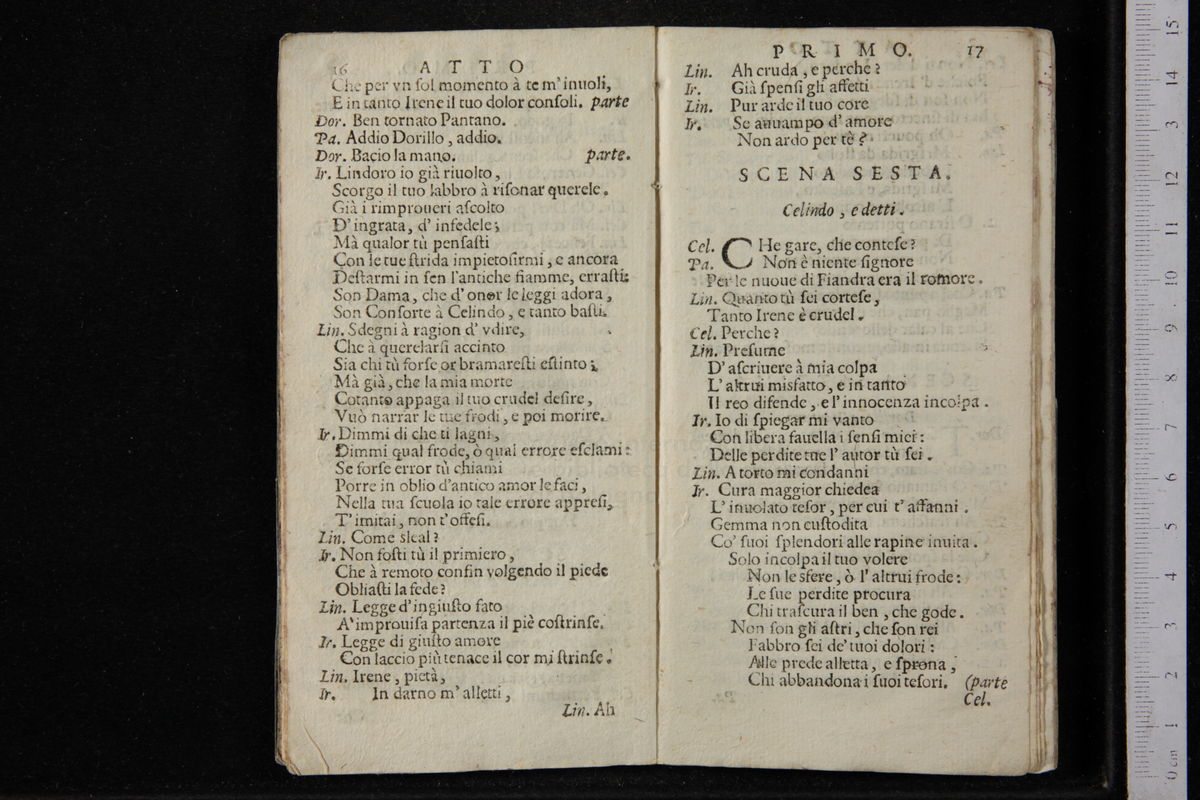 16 ATTO
Che per vn ſol momento à te m'inuoli,
E in tanto Irene il tuo dolor conſoli. parte
Dor. Ben tornato Pantano.
Pa. Addio Dorillo, addio.
Dor. Bacio la mano. parte.
Ir. Lindoro io già riuolto,
Scorgo il tuo labbro à riſonar querele.
Già i rimproueri aſcolto
D'ingrata, d'infedele;
Mà qualor tù penſaſti
Con le tue ſtrida impietoſirmi, e ancora
Deſtarmi in ſen l'antiche fiamme, erraſti:
Son Dama, che d'onor le leggi adora,
Son Conſorte à Celindo, e tanto baſti.
Lin. Sdegni à ragion d'vdire,
Che à querelarſi accinto
Sia chi tù forſe or bramareſti eſtinto;
Mà già, che la mia morte
Cotanto appaga il tuo crudel deſire,
Vuò narrar le tue frodi, e poi morire.
Ir. Dimmi di che ti lagni,
Dimmi qual frode, ò qual errore eſclami:
Se forſe error tù chiami
Porre in oblio d'antico amor le faci,
Nella tua ſcuola io tale errore appreſi,
T'imitai, non t'offeſi.
Lin. Come sleal?
Ir. Non foſti tù il primiero,
Che à remoto confin volgendo il piede
Obliaſti la fede?
Lin. Legge d'ingiuſto fato
A'improuiſa partenza il piè coſtrinſe.
Ir. Legge di giuſto amore
Con laccio più tenace il cor mi ſtrinſe.
Lin. Irene, pietà,
Ir. In darno m'alletti,
Lin. Ah
PRIMO. 17
Lin. Ah cruda, e perche?
Ir. Già ſpenſi gli affetti
Lin. Pur arde il tuo core
Ir. Se auuampo d'amore
Non ardo per tè?
SCENA SESTA.
Celindo, e detti.
Cel. CHe gare, che conteſe?
Pa. Non è niente ſignore
Per le nuoue di Fiandra era il romore.
Lin. Quanto tù ſei corteſe,
Tanto Irene è crudel.
Cel. Perche?
Lin. Preſume
D'aſcriuere à mia colpa
L'altrui misfatto, e in tanto
Il reo difende, e l'innocenza incolpa.
Ir. Io di ſpiegar mi vanto
Con libera fauella i ſenſi miei:
Delle perdite tue l'autor tù ſei.
Lin. A torto mi condanni
Ir. Cura maggior chiedea
L'inuolato teſor, per cui t'affanni.
Gemma non cuſtodita
Co' ſuoi ſplendori alle rapine inuita.
Solo incolpa il tuo volere
Non le sfere, ò l'altrui frode:
Le ſue perdite procura
Chi traſcura il ben, che gode.
Non ſon gli aſtri, che ſon rei
Fabbro ſei de' tuoi dolori:
Alle prede alletta, e ſprona,
Chi abbandona i ſuoi teſori. (parte
Cel.